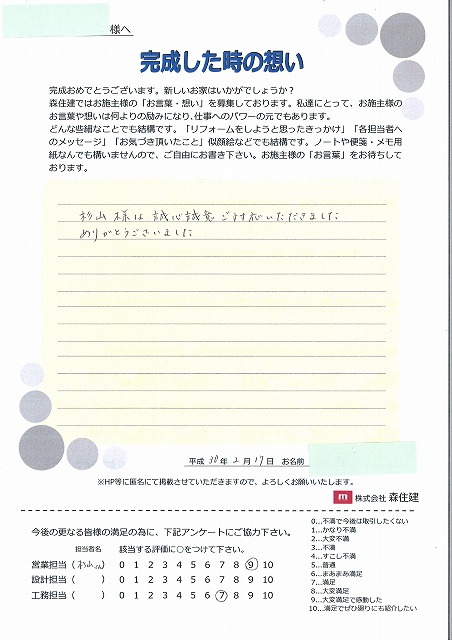 様へ
完成した時の想い
完成おめでとうございます。新しいお家はいかがでしょうか？
森住建ではお施主様の「お言葉・想い」を募集しております。私達にとって、お施主様の
お言葉や想いは何よりの励みになり、仕事へのパワーの元でもあります。
どんな些細なことでも結構です。「リフォームをしようと思ったきっかけ」「各担当者へ
のメッセージ」「お気づき頂いたこと」似顔絵などでも結構です。ノートや便箋・メモ用
紙なんでも構いませんので、ご自由にお書き下さい。お施主様の「お言葉」をお待ちして
おります。
杉山様は誠心誠意ご対応いただきました
ありがとうございました
平成 30年 2月 17日 お名前
※HP等に匿名にて掲載させていただきますので、よろしくお願いいたします。
m 株式会社 森住建
今後の更なる皆様の満足の為に、下記アンケートにご協力下さい。
担当者名 該当する評価に〇をつけて下さい。
営業担当（杉山さん） 0 1 2 3 4 5 6 7 8 9 10
設計担当（ ） 0 1 2 3 4 5 6 7 8 9 10
工務担当（ ） 0 1 2 3 4 5 6 7 8 9 10
0…不満で今後は取引したくない
1…かなり不満
2…大変不満
3…不満
4…すこし不満
5…普通
6…まあまあ満足
7…満足
8…大変満足
9…大変満足で感動した
10…満足でぜひ廻りにも紹介したい